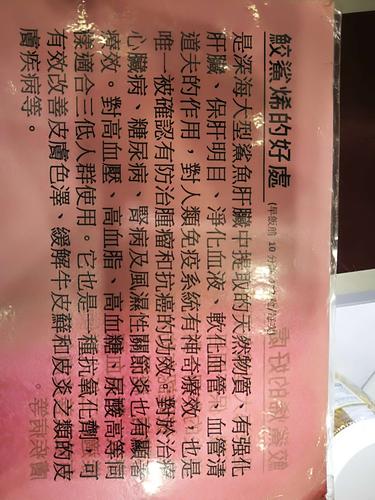 鮫鯊烯的好處(早飯前 10 分
是深海大型鯊魚肝臟中提取的天然物質、有强化
肝臟、保肝明目、淨化血液、軟化血管、血管清
道夫的作用，對人類免疫系統有神奇療效，也是
唯一被確認有防治腫瘤和抗癌的功效。對於治療
心臟病、糖尿病、腎病及風濕性關節炎也有顯著
療效。對高血壓、高血脂、高血糖、尿酸高等同
樣適合三低人群使用。它也是一種抗氧化劑，可
有效改善皮膚色澤、緩解牛皮蘚和皮炎之類的皮
膚疾病等。